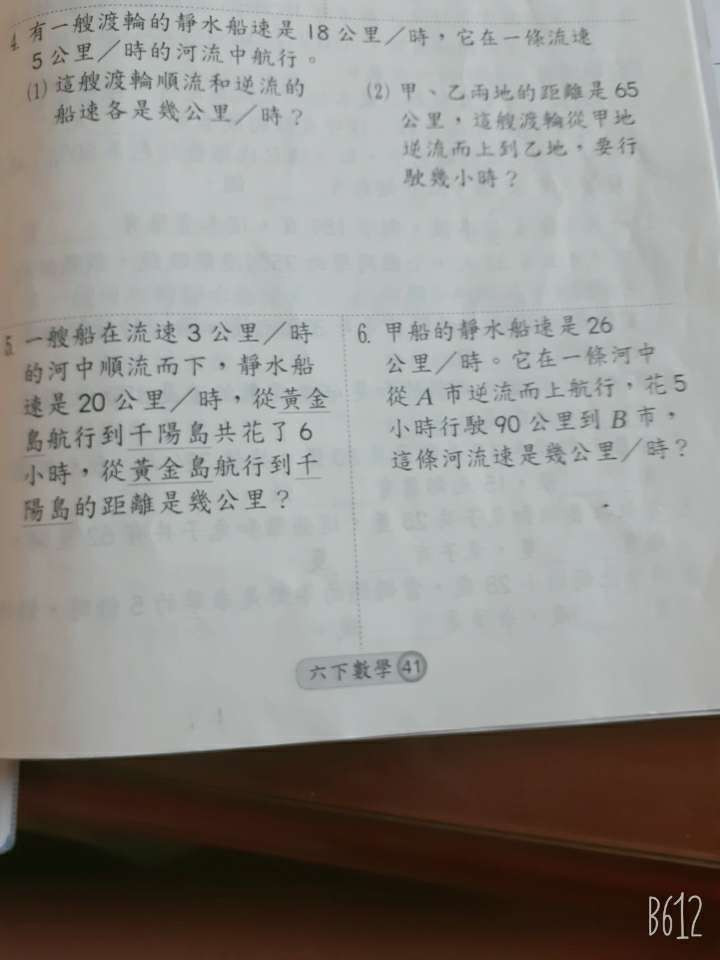 4. 有一艘渡輪的靜水船速是18公里/時，它在一條流速
5公里/時的河流中航行。
(1) 這艘渡輪順流和逆流的
船速各是幾公里/時？
(2) 甲、乙兩地的距離是65
公里，這艘渡輪從甲地
逆流而上到乙地，要行
駛幾小時？
5. 一艘船在流速3公里/時
的河中順流而下，靜水船
速是20公里/時，從黃金
島航行到千陽島共花了6
小時，從黃金島航行到千
陽島的距離是幾公里？
6. 甲船的靜水船速是26
公里/時。它在一條河中
從A市逆流而上航行，花5
小時行駛90公里到B市，
這條河流速是幾公里/時？
六下數學 41
B612